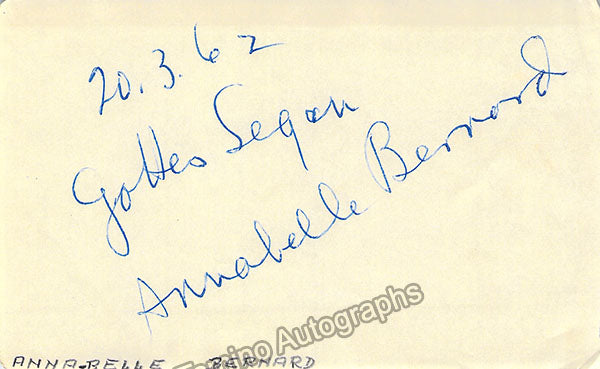 20.3.62
Gottes Segen
Annabelle Bernard
Tamino Autographs
ANNA-BELLE BERNARD